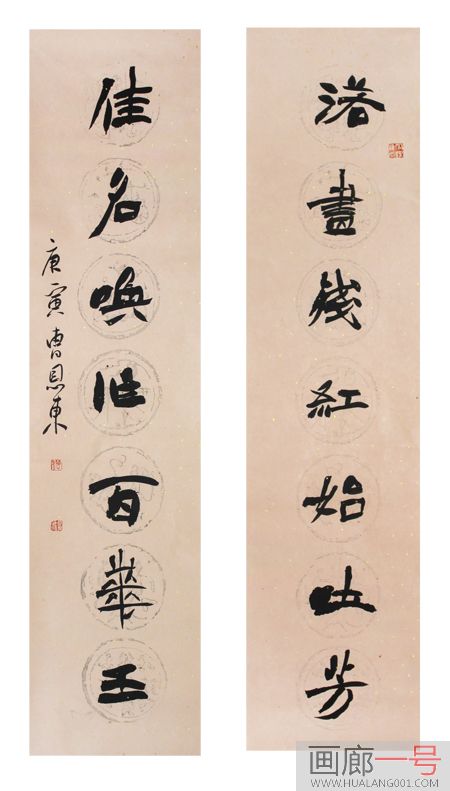 落盡殘紅始吐芳
佳名喚作百華王
庚寅曹恩東
画廊一号
WWW.HUALANG001.COM